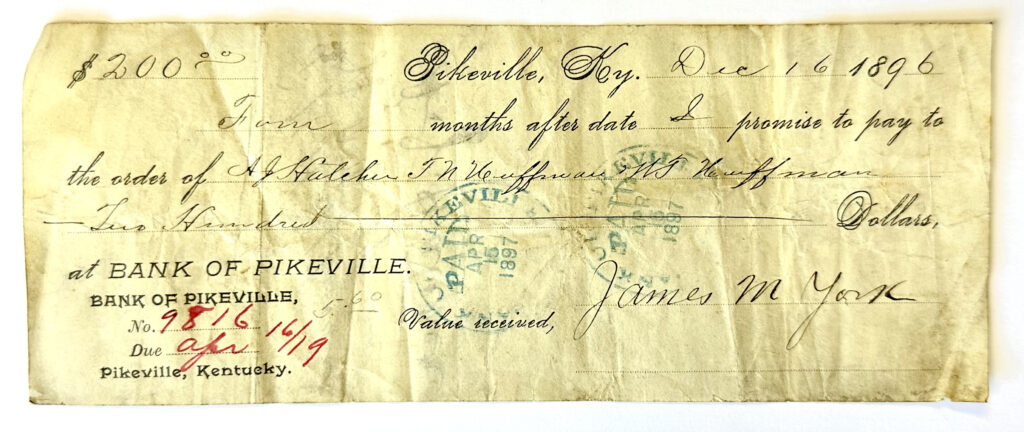 $200.00 Pikeville, Ky. Dec 16 1896
Four months after date I promise to pay to
the order of A J Hatcher T N Huffman W T Huffman
Two Hundred Dollars,
at BANK OF PIKEVILLE.
BANK OF PIKEVILLE, 5.60
No. 9816
Due Apr 16/19
Pikeville, Kentucky.
Value received, James M York
PIKEVILLE
PAID
APR
15
1897
PIKEVILLE
PAID
APR
15
1897